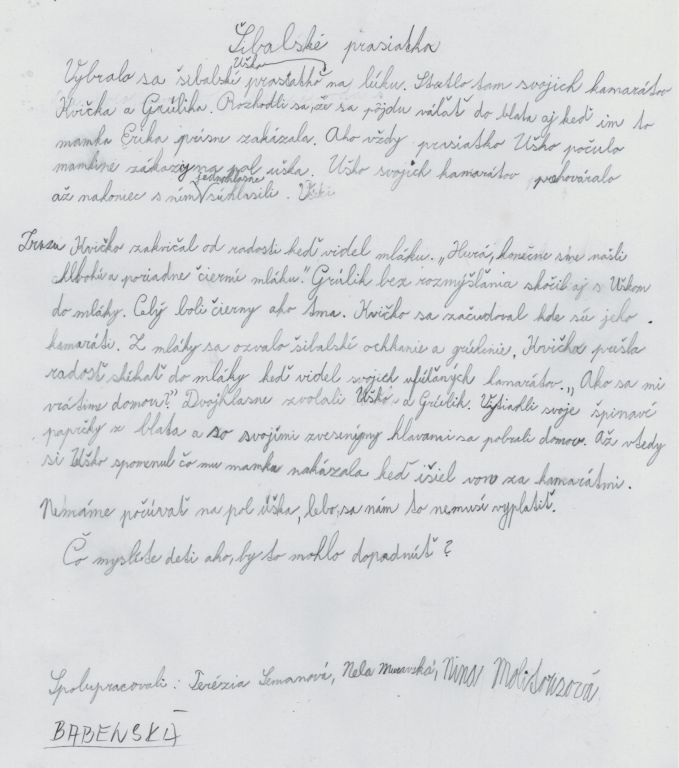 Šibalské prasiatka
Vybralo sa šibalské prasiatko Uško na lúku. Stretlo tam svojich kamarátov
Kvička a Grúlika. Rozhodli sa, že sa pôjdu váľať do blata aj keď im to
mamka Erika prísne zakázala. Ako vždy prasiatko Uško počulo
mamkine zákazy na pol uška. Uško svojich kamarátov prehováralo
až nakoniec s ním jednohlasne súhlasili.
Zrazu Kvičko zakričal od radosti keď videl mláku. „Hurá, konečne sme našli
hlbokú a poriadne čiernu mláku." Grúlik bez rozmýšľania skočil aj s Uškom
do mláky. Celý boli čierny ako tma. Kvičko sa začudoval kde sú jeho
kamaráti. Z mláky sa ozvalo šibalské ochkanie a grúlenie. Kvička prešla
radosť skákať do mláky keď videl svojich kamarátov. „Ako sa mi
vrátime domov?" Dvojhlasne zvolali Uško a Grúlik. Vytiahli svoje špinavé
papričky z blata a so svojími zvesenými hlavami sa pobrali domov. Až vtedy
si Uško spomenul čo mu mamka nakázala keď išiel von za kamarátmi.
Nemáme počúvať na pol úška, lebo sa nám to nemusí vyplatiť.
Čo myslíte deti ako, by to mohlo dopadnúť?
Spolupracovali: Terézia Semanová, Nela Nina
BABENSKÁ